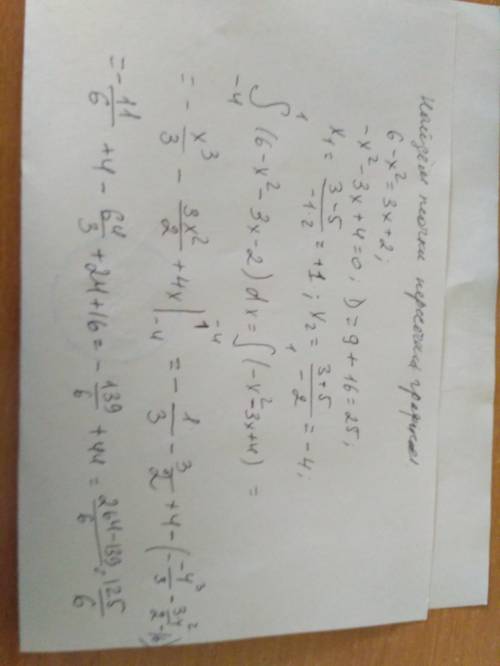 Найдём точки пересечен графиков
6-x²=3x+2;
-x²-3x+4=0, D=9+16=25;
x₁= (3-5)/(-1·2) =+1; x₂= (3+5)/(-2) =-4;
∫₋₄¹ (6-x²-3x-2)dx=∫₁⁻⁴(-x²-3x+4) =
= -x³/3 - 3x²/2 +4x|₋₄¹ = -1/3 - 3/2 +4-(- -4³/3 - 3·4²/2 -16)
=-11/6 +4- 64/3 +24+16=- 139/6 +44= (264-139)/6 = 125/6